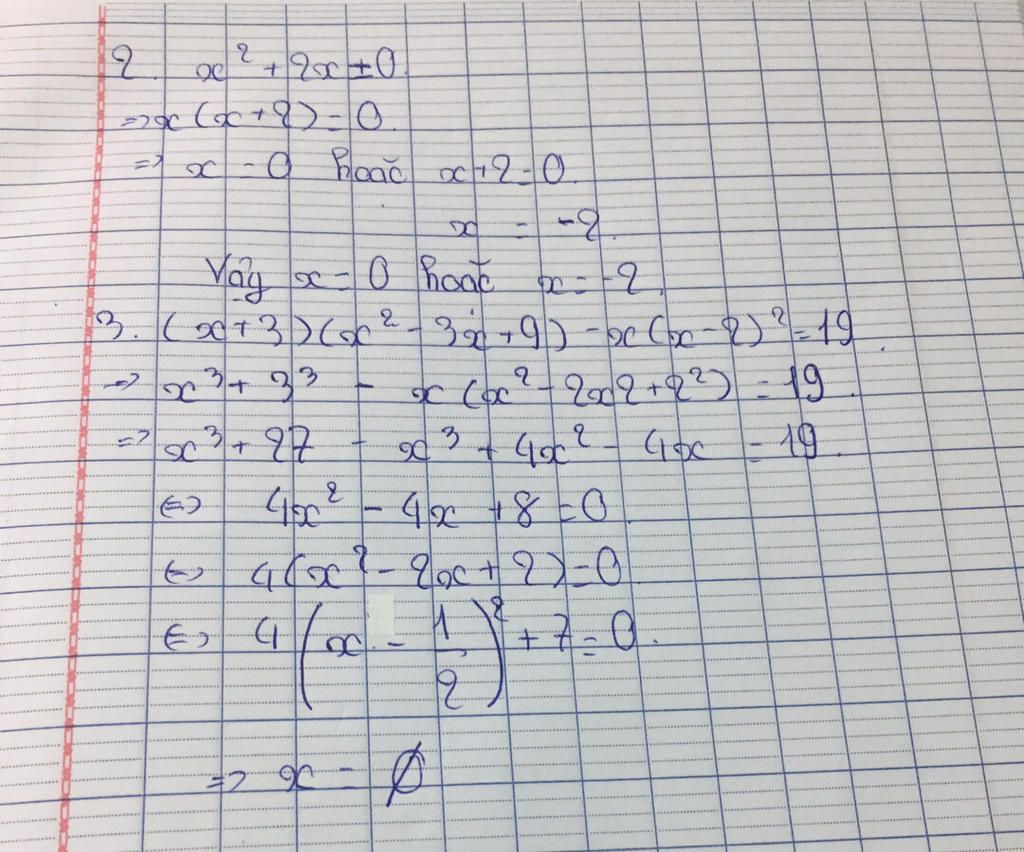 2. x² + 2x = 0.
=> x(x+2) = 0.
=> x = 0 hoặc x+2 = 0.
x = -2.
Vậy x = 0 hoặc x = -2.
3. (x+3)(x² - 3x + 9) - x(x-2)² = 19
=> x³ + 3³ - x(x² - 2x2 + 2²) = 19.
=> x³ + 27 - x³ + 4x² - 4x = 19.
<=> 4x² - 4x + 8 = 0.
<=> 4(x² - 2x + 2) = 0
<=> 4(x - 1/2)² + 7 = 0.
=> x = ∅